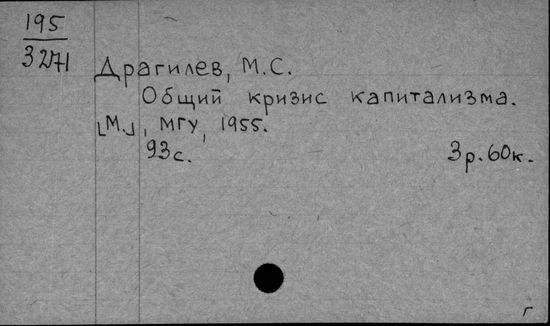 195
3271
Драгилев, М.С.
Общий кризис капитализма.
[М.], МГУ, 1955.
93с. 3р.60к.
г